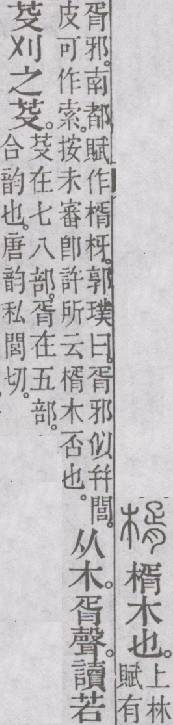 楈 楈木也。上林
賦有
胥邪。南都賦作楈枒。郭璞曰。胥邪似幷閭。
皮可作索。按未審卽許所云楈木否也。
从木。胥聲。讀若
芟刈之芟。
芟在七八部。胥在五部。
合韵也。唐韵私閭切。